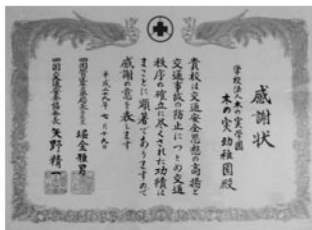 感謝状
学校法人木の実学園
木の実幼稚園殿
貴校は交通安全思想の高揚と
交通事故の防止につとめ交通
秩序の確立に尽くされた功績は
まことに顕著でありますので
感謝の意を表します
平成二十九年七月十九日
四国管区警察局長
堀金雅男
四国交通安全協会長
矢野精一